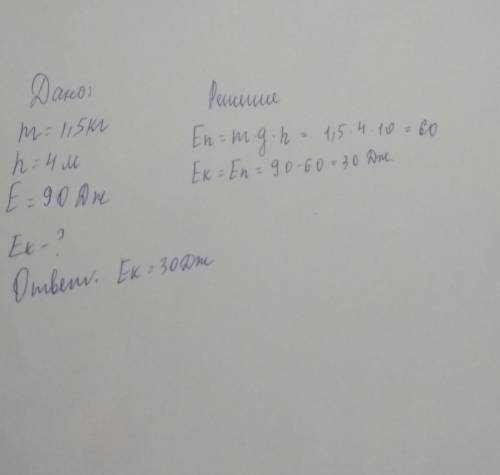 Дано:
m = 1,5 кг
h = 4 м
E = 90 Дж
Eк - ?
Ответ. Eк = 30 Дж
Решение
Eп = m·g·h = 1,5·4·10 = 60
Eк = Eп = 90-60 = 30 Дж